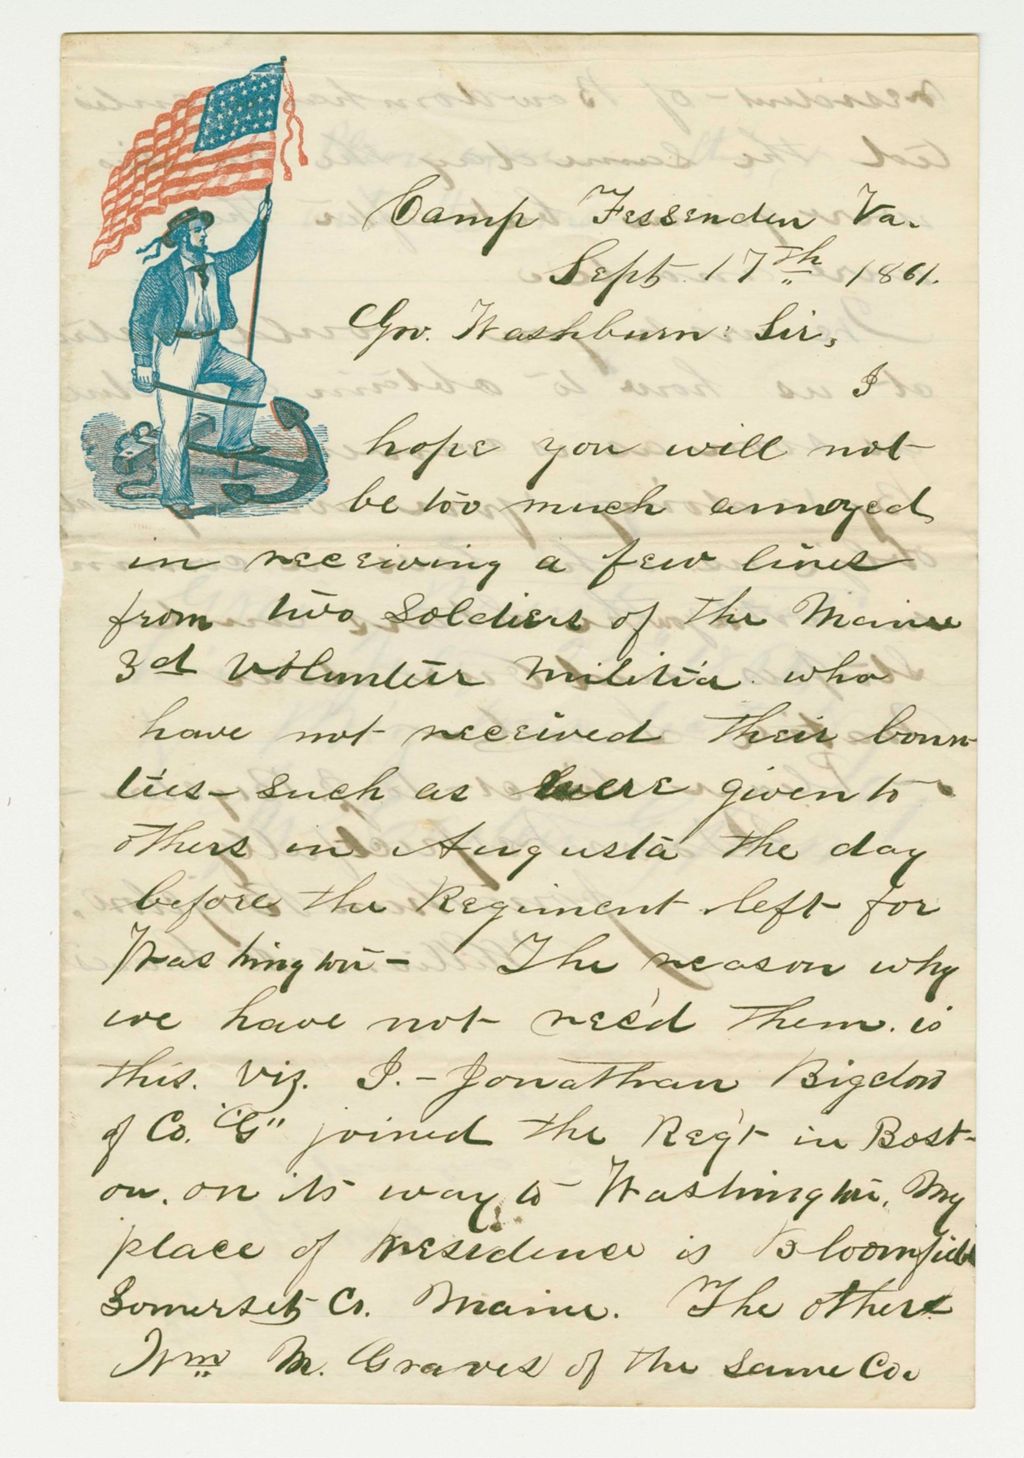 Camp Fessenden Va.
Sept. 17th 1861.
Gov. Washburn: Sir,
I
hope you will not
be too much annoyed
in receiving a few lines
from two Soldiers of the Maine
3d Volunteer Militia who
have not received their boun-
ties - such as were given to
others in Augusta the day
before the Regiment left for
Washington - The reason why
we have not rec'd them. is
this. viz. I. - Jonathan Bigelow
of Co. "G" joined the Reg't in Bost-
on. on its way to Washington. My
place of residence is Bloomfield
Somerset Co. Maine. The other
Wm M. Graves of the same Co.